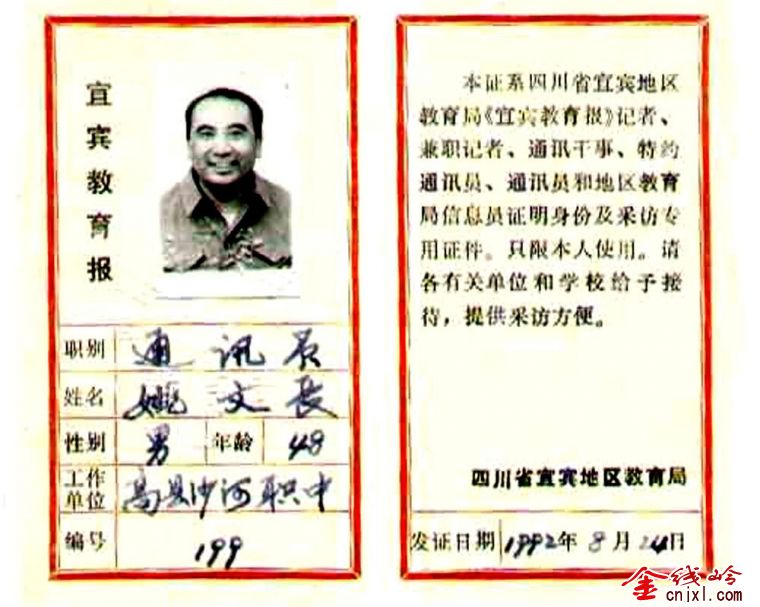 宜宾教育报
职别 通讯员
姓名 姚文长
性别 男 年龄 48
工作
单位 高县沙河职中
编号 199
本证系四川省宜宾地区
教育局《宜宾教育报》记者、
兼职记者、通讯干事、特约
通讯员、通讯员和地区教育
局信息员证明身份及采访专
用证件。只限本人使用。请
各有关单位和学校给予接
待，提供采访方便。
四川省宜宾地区教育局
发证日期 1992年8月24日
金线岭
cnjxl.com